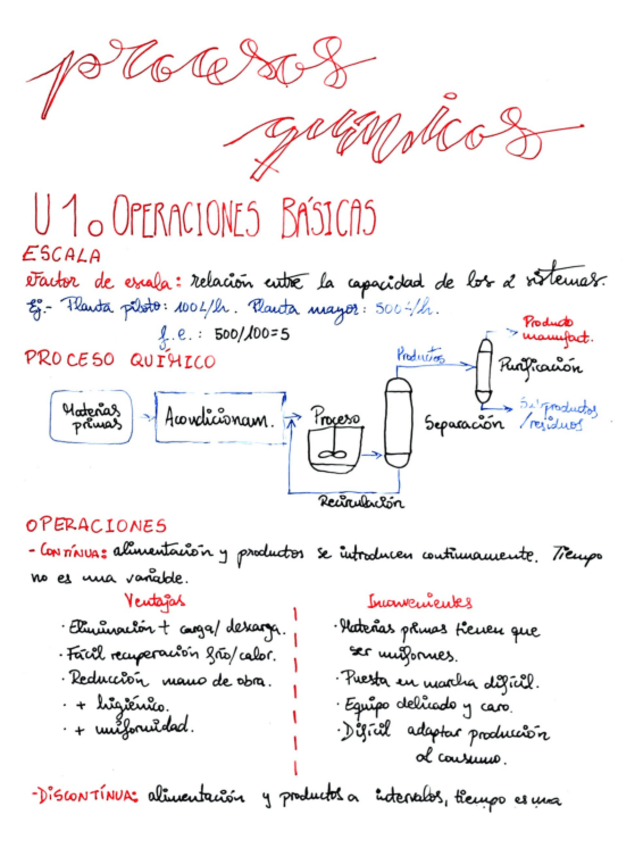 procesos
químicos
U1. OPERACIONES BÁSICAS
ESCALA
Factor de escala: relación entre la capacidad de los 2 sistemas.
Ej.- Planta piloto: 100L/h. Planta mayor: 500L/h.
f.e.: 500/100=5
PROCESO QUÍMICO
Materias primas
Acondicionam.
Proceso
Productos
Separación
Purificación
Producto manufact.
Subproductos /residuos
Recirculación
OPERACIONES
- CONTÍNUA: alimentación y productos se introducen continuamente. Tiempo
no es una variable.
Ventajas
· Eliminación t carga/descarga.
· Fácil recuperación frío/calor.
· Reducción mano de obra.
· + higiénico.
· + uniformidad.
Inconvenientes
· Materias primas tienen que
ser uniformes.
· Puesta en marcha difícil.
· Equipo delicado y caro.
· Difícil adaptar producción
al consumo.
-DISCONTÍNUA: alimentación y productos a intervalos, tiempo es una